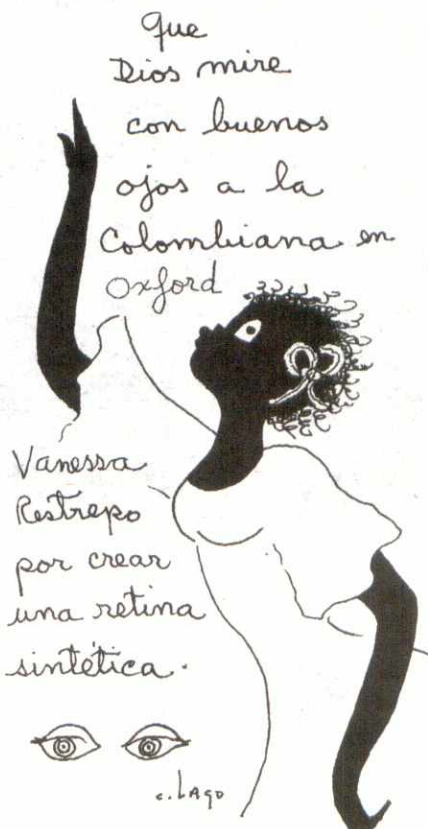 que
Dios mire
con buenos
ojos a la
Colombiana en
Oxford
Vanessa
Restrepo
por crear
una retina
sintética.
c. LAGO